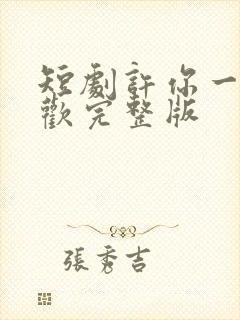 短劇許你一
歡完整版
張秀吉